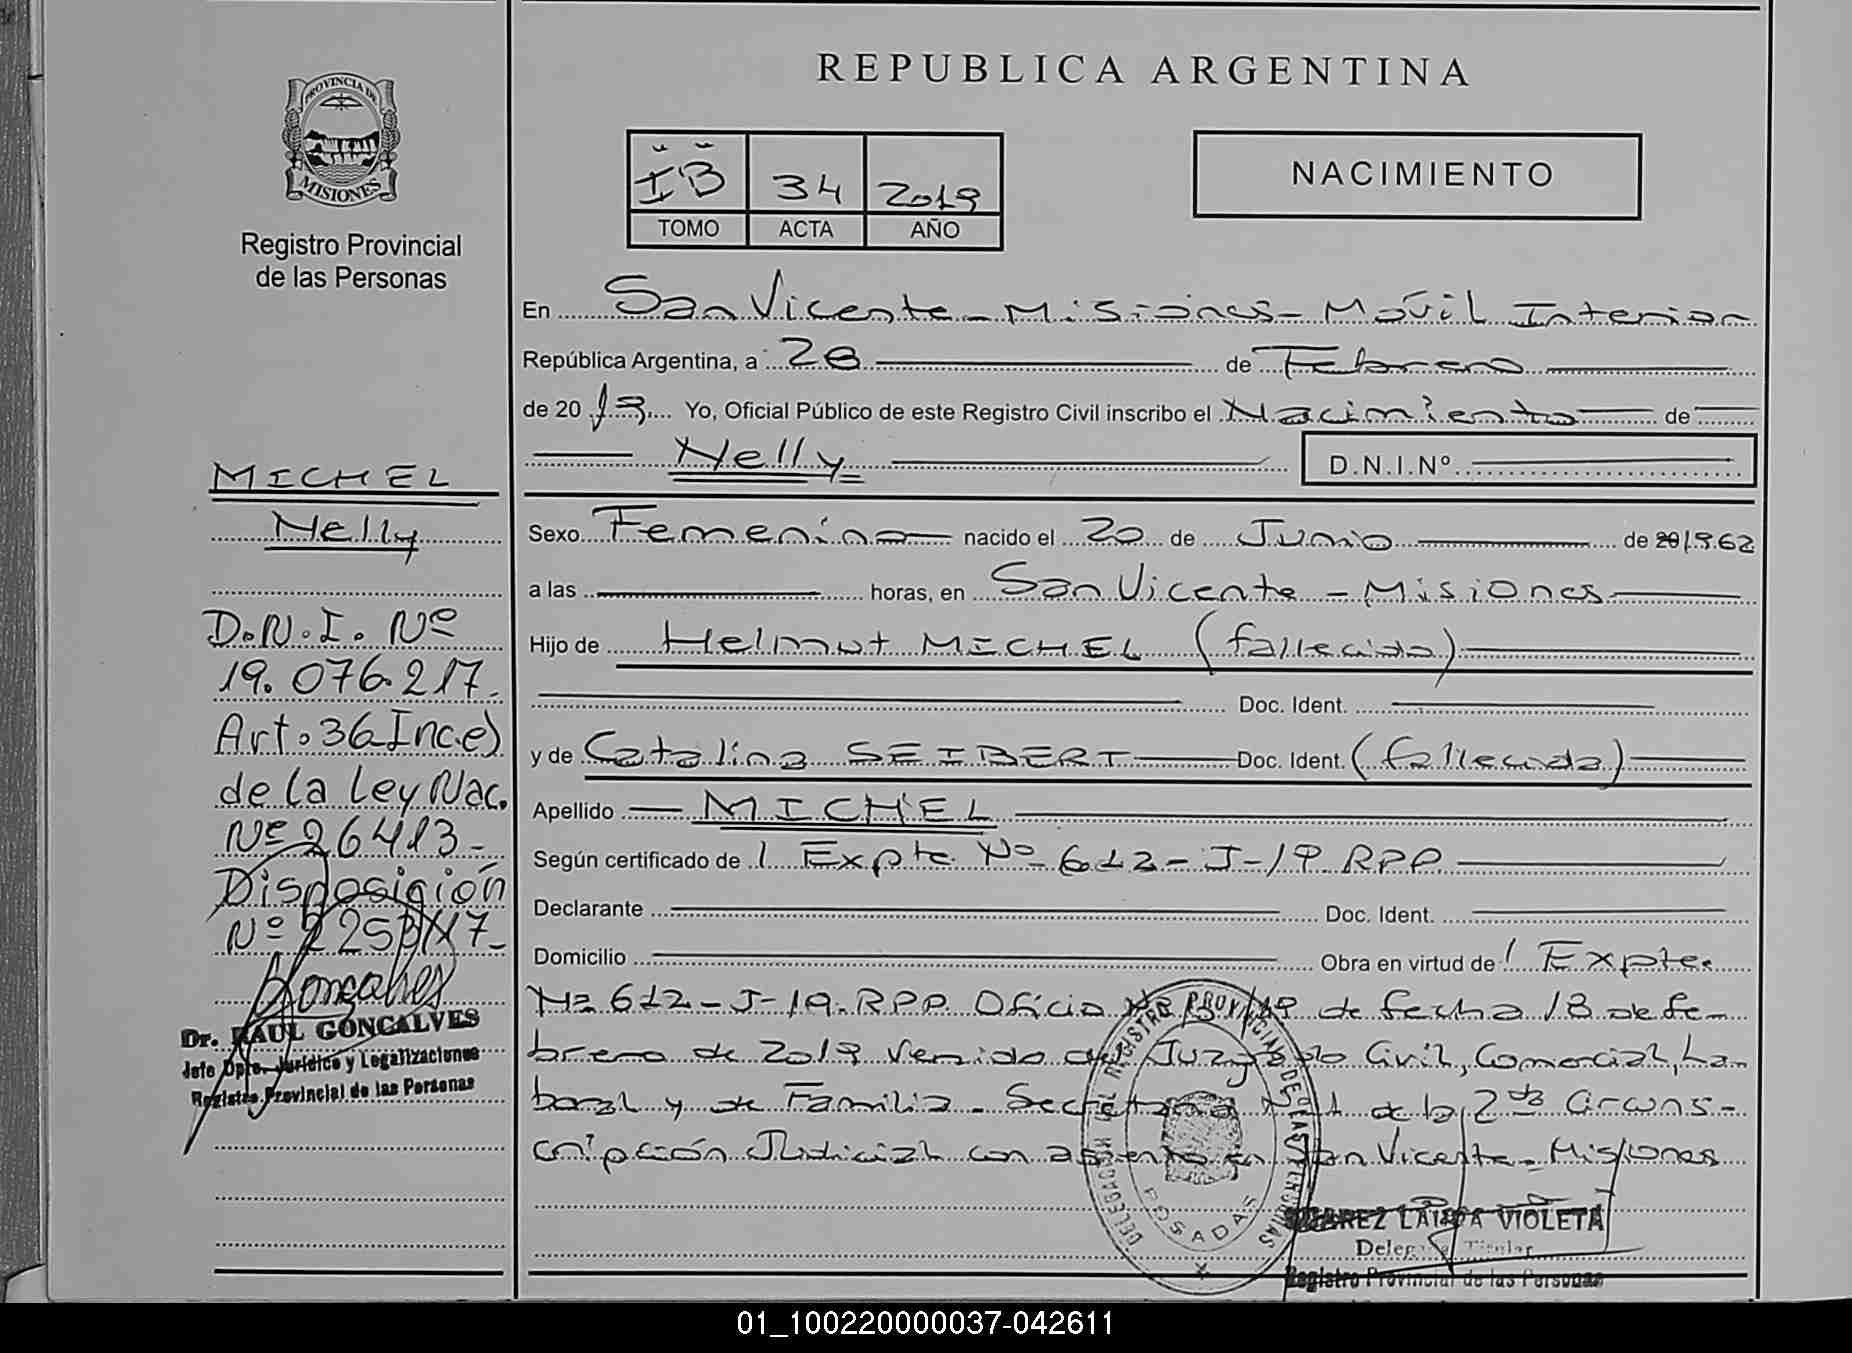 REPUBLICA ARGENTINA
PROVINCIA DE
MISIONES
Registro Provincial
de las Personas
IB 34 2019
TOMO ACTA AÑO
NACIMIENTO
En San Vicente - Misiones - Móvil Interior
República Argentina, a 28 de Febrero
de 20 19 Yo, Oficial Público de este Registro Civil inscribo el Nacimiento de
Nelly
D.N.I.Nº
MICHEL
Nelly
D.N.I. Nº
19.076.217.
Art. 36 Inc.e)
de la Ley Nac.
Nº 26413-
Disposición
Nº
Goncalves
Dr. RAUL GONCALVES
Jefe Dpto. Jurídico y Legalizaciones
Registro Provincial de las Personas
Sexo Femenino nacido el 20 de Junio de 20 1962
a las horas, en San Vicente - Misiones
Hijo de Helmut MICHEL (fallecido)
Doc. Ident.
y de Catalina SEIBERT Doc. Ident. (fallecida)
Apellido MICHEL
Según certificado de / Expte Nº 612 - J - 19 RPP.
Declarante Doc. Ident.
Domicilio Obra en virtud de / Expte.
Nº 612 - J - 19. RPP. Oficio de fecha 18 de Fe-
brero de 2019 venido del Juzgado Civil, Comercial, La-
boral y de Familia - Secretaría Nº 1 de la 2da Circuns-
cripción Judicial con asiento en San Vicente - Misiones
DELEGACION DEL REGISTRO PROVINCIAL DE LAS PERSONAS
POSADAS
LAURA VIOLETA
Delegada Titular
Registro Provincial de las Personas
01_100220000037-042611